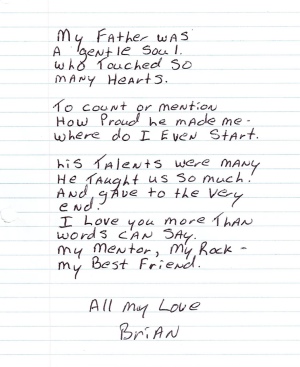 My Father was
A gentle Soul.
who Touched so
many Hearts.
To count or mention
How Proud he made me -
where do I Even Start.
his Talents were many
He Taught us so much.
And gave to the very
end.
I Love you more Than
words can say.
my Mentor, my Rock -
my Best Friend.
All my Love
Brian